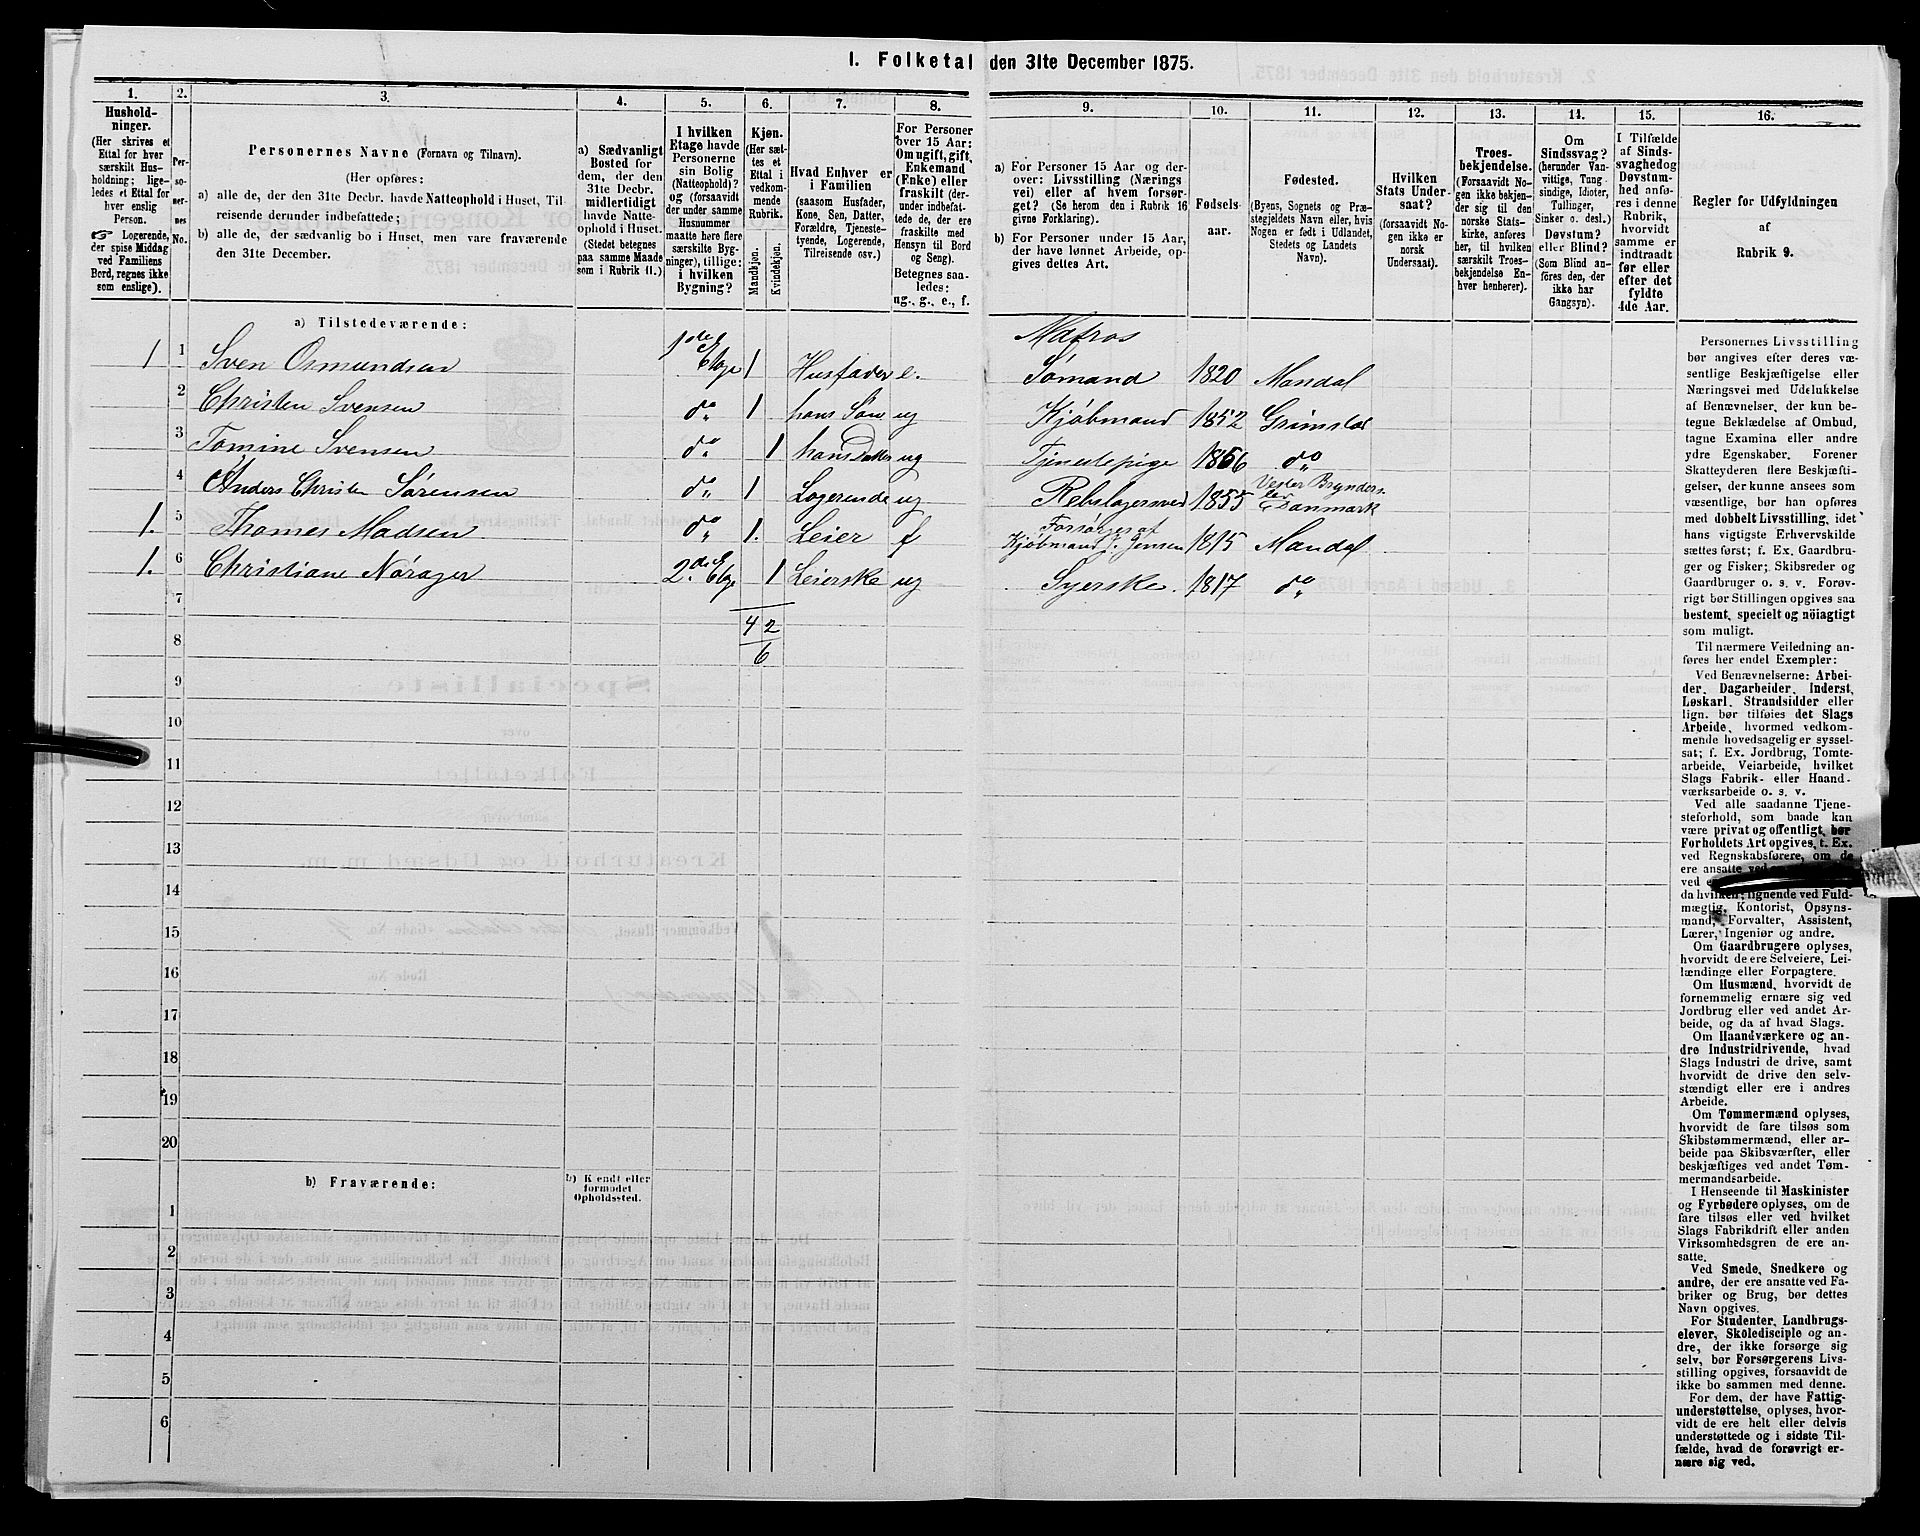 1. Folketal den 31te December 1875.
1.
Hushold-
ninger.
(Her skrives et
Ettal for hver
særskilt Hus-
holdning; lige-
ledes et Ettal for
hver enslig
Person.
☞ Logerende,
der spise Middag
ved Familiens
Bord, regnes ikke
som enslige).
2.
Per-
so-
ner-
nes
No.
3.
Personernes Navne (Fornavn og Tilnavn).
(Her opføres:
a) alle de, der den 31te Decbr. havde Natteophold i Huset, Til-
reisende derunder indbefattede;
b) alle de, der sædvanlig bo i Huset, men vare fraværende
den 31te December.
4.
a) Sædvanligt
Bosted for
dem, der den
31te Decbr.
midlertidigt
havde Natte-
ophold i Huset.
(Stedet betegnes
paa samme Maade
som i Rubrik 11.)
5.
I hvilken
Etage havde
Personerne
sin Bolig
(Natteophold)?
og (forsaavidt
der under samme
Husnummer
maatte høre flere
særskilte Byg-
ninger), tillige:
i hvilken
Bygning?
6.
Kjøn.
(Her sæt-
tes et
Ettal i
vedkom-
mende
Rubrik.
Mandkjøn.
Kvindekjøn.
7.
Hvad Enhver er
i Familien
(saasom Husfader,
Kone, Søn, Datter,
Forældre, Tjeneste-
tyende, Logerende,
Tilreisende osv.)
8.
For Personer
over 15 Aar:
Om ugift, gift,
Enkemand
(Enke) eller
fraskilt (der-
under indbefat-
tede de, der ere
fraskilte med
Hensyn til Bord
og Seng).
Betegnes saa-
ledes:
ug., g., e., f.
9.
a) For Personer 15 Aar og der-
over: Livsstilling (Nærings
vei) eller af hvem forsør-
get? (Se herom den i Rubrik 16
givne Forklaring).
b) For Personer under 15 Aar,
der have lønnet Arbeide, op-
gives dettes Art.
10.
Fødsels-
aar.
11.
Fødested.
(Byens, Sognets og Præ-
stegjeldets Navn eller, hvis
Nogen er født i Udlandet,
Stedets og Landets
Navn).
12.
Hvilken
Stats Under-
saat?
(forsaavidt No-
gen ikke er
norsk
Undersaat).
13.
Troes-
bekjendelse.
(Forsaavidt No-
gen ikke bekjen-
der sig til den
norske Stats-
kirke, anføres
her, til hvilken
særskilt Troes-
bekjendelse En-
hver henhører).
14.
Om
Sindssvag?
(herunder Van-
vittige, Tung-
sindige, Idioter,
Tullinger,
Sinker o. desl.)
Døvstum?
eller Blind?
(Som Blind an-
føres den, der
ikke har
Gangsyn).
15.
I Tilfælde
af Sinds-
svaghed og
Døvstum-
hed anfø-
res i denne
Rubrik,
hvorvidt
samme er
indtraadt
før eller
efter det
fyldte
4de Aar.
16.
Regler for Udfyldningen
af
Rubrik 9.
a) Tilstedeværende:
1 1 Sven Osmundsen 1ste Etage 1 Husfader e. Matros Sømand 1820 Mandal
2 Christen Svensen do 1 hans Søn ug Kjøbmand 1852 Grimstad
3 Tomine Svensen do 1 hans Datter ug Tjenestepige 1856 do
4 Anders Christen Sørensen do 1 Logerende ug Rebslagersvend 1855 Vester Brynders- lev Danmark
1. 5 Thomas Madsen do 1. Leier f Forsørges af Kjøbmand J. Jensen 1815 Mandal
1. 6 Christiane Nørager 2den Etage 1 Leierske ug Syerske. 1817 do
7
4 2
8
6
9
10
11
12
13
14
15
16
17
18
19
20
b) Fraværende:
b) Kjendt eller
formodet
Opholdssted.
1
2
3
4
5
6
Personernes Livsstilling
bør angives efter deres væ-
sentlige Beskjæftigelse eller
Næringsvei med Udelukkelse
af Benævnelser, der kun be-
tegne Beklædelse af Ombud,
tagne Examina eller andre
ydre Egenskaber. Forener
Skatteyderen flere Beskjæfti-
gelser, der kunne ansees som
væsentlige, bør han opføres
med dobbelt Livsstilling, idet
hans vigtigste Erhvervskilde
sættes først; f. Ex. Gaardbru-
ger og Fisker; Skibsreder og
Gaardbruger o. s. v. Forøv-
rigt bør Stillingen opgives saa
bestemt, specielt og nöiagtigt
som muligt.
Til nærmere Veiledning an-
føres her endel Exempler:
Ved Benævnelserne: Arbei-
der, Dagarbeider, Inderst,
Løskarl, Strandsidder eller
lign. bør tilføies det Slags
Arbeide, hvormed vedkom-
mende hovedsagelig er syssel-
sat; f. Ex. Jordbrug, Tomte-
arbeide, Veiarbeide, hvilket
Slags Fabrik- eller Haand-
værksarbeide o. s. v.
Ved alle saadanne Tjene-
steforhold, som baade kan
være privat og offentligt, bør
Forholdets Art opgives, t. Ex.
ved Regnskabsførere, om de
ere ansatte ved
ved e
da hvilken; lignende ved Fuld-
mægtig, Kontorist, Opsyns-
mand, Forvalter, Assistent,
Lærer, Ingeniør og andre.
Om Gaardbrugere oplyses,
hvorvidt de ere Selveiere, Lei-
lændinge eller Forpagtere.
Om Husmænd, hvorvidt de
fornemmelig ernære sig ved
Jordbrug eller ved andet Ar-
beide, og da af hvad Slags.
Om Haandværkere og an-
dre Industridrivende, hvad
Slags Industri de drive, samt
hvorvidt de drive den selv-
stændigt eller ere i andres
Arbeide.
Om Tømmermænd oplyses,
hvorvidt de fare tilsøs som
Skibstømmermænd, eller ar-
beide paa Skibsværfter, eller
beskjæftiges ved andet Tøm-
mermandsarbeide.
I Henseende til Maskinister
og Fyrbødere oplyses, om de
fare tilsøs eller ved hvilket
Slags Fabrikdrift eller anden
Virksomhedsgren de ere an-
satte.
Ved Smede, Snedkere og
andre, der ere ansatte ved Fa-
briker og Brug, bør dettes
Navn opgives.
For Studenter, Landbrugs-
elever, Skoledisciple og an-
dre, der ikke forsørge sig
selv, bør Forsørgerens Livs-
stilling opgives, forsaavidt de
ikke bo sammen med denne.
For dem, der have Fattig-
understøttelse, oplyses, hvor-
vidt de ere helt eller delvis
understøttede og i sidste Til-
fælde, hvad de forøvrigt er-
nære sig ved.